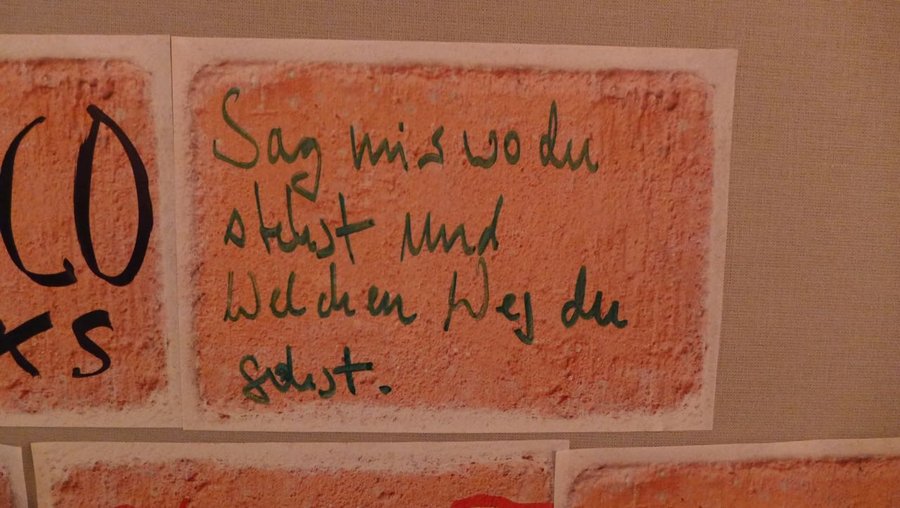 CO
KS
Sag mir wo du
stehst und
Welchen Weg du
gehst.